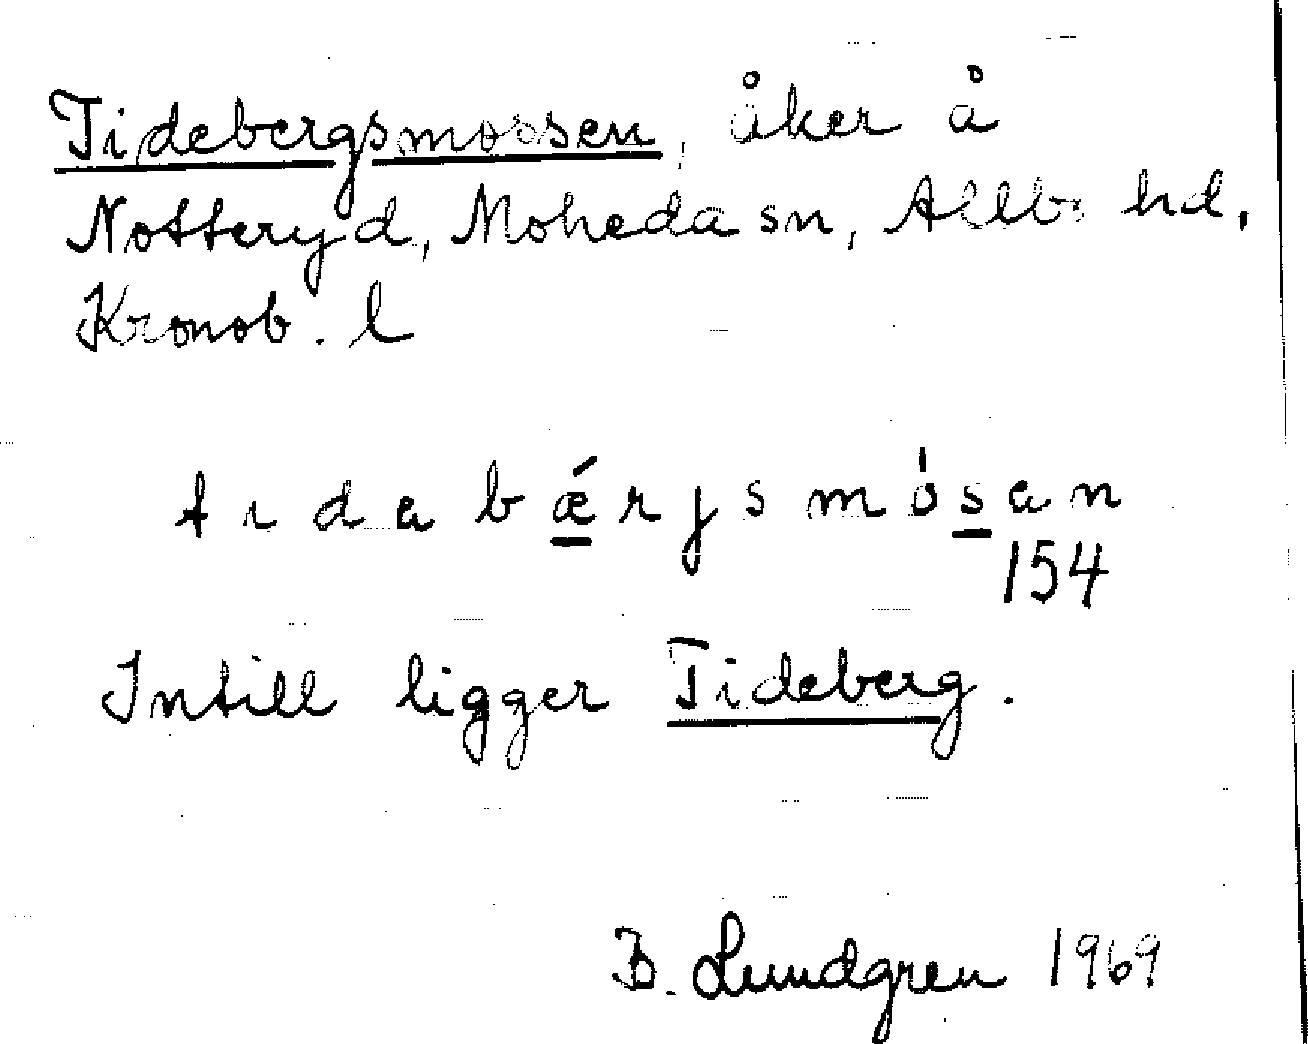 Tidebergsmossen, åker å
Notteryd, Moheda sn, Allbo hd,
Kronob. l
tıdabǽrjsmósan
154
Intill ligger Tideberg.
B. Lundgren 1969